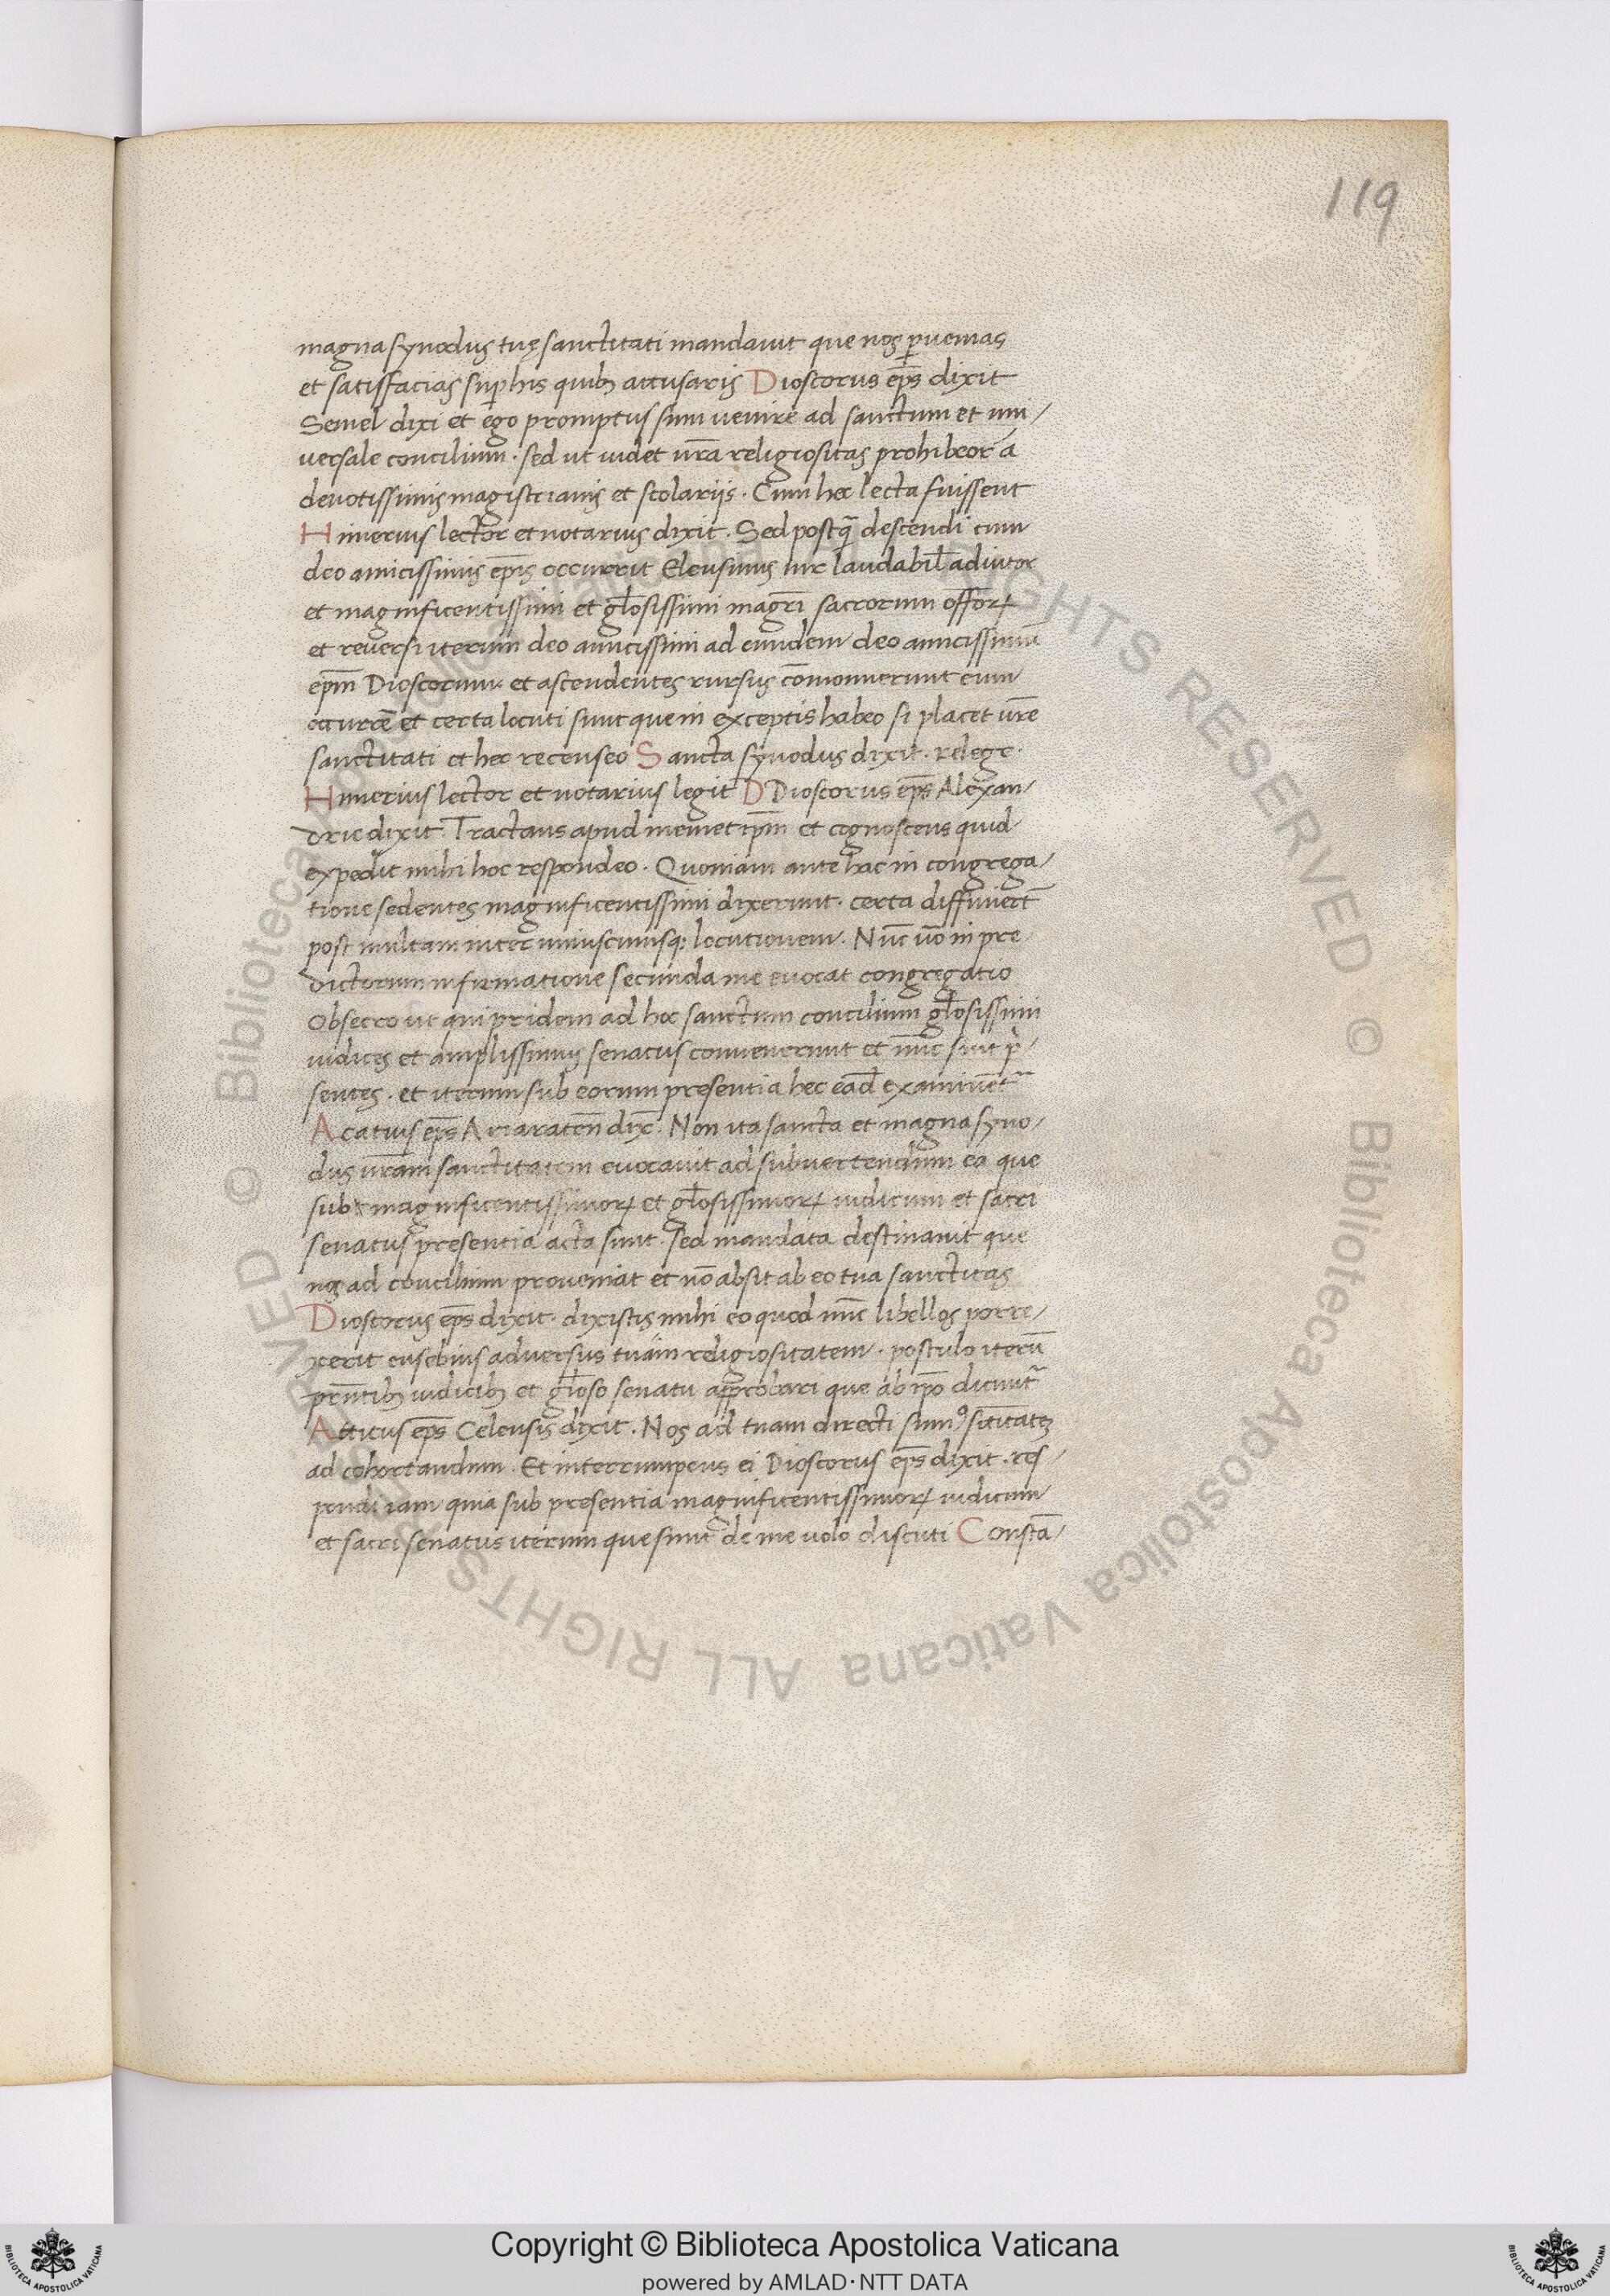 119
magna synodus tuę sanctitati mandauit que nos p̱uenias
et satisfacias sup his quib; accusaris Dioscorus ep̄s dixit
Semel dixi et ego promptus sum uenire ad sanctum et uni/
uersale concilium. sed ut uidet ur̄a religiositas prohibeor a
deuotissimis magistrianis et scolariis. Cum hec lecta fuissent
Himerius lector et notarius dixit. Sed postq̄ descendi cum
deo amicissimis ep̄is occurrit Eleusinus uir laudabil̄ adiutor
et magnificentissimi et gl̄osissimi magr̄i sacrorum offorꝝ
et reuersi iterum deo amicissimi ad eundem deo amicissimū
ep̄m Dioscorum et ascendentes rursus cōmonuerunt eum
occurrē et certa locuti sunt que in exceptis habeo si placet ur̄e
sanctitati et hec recenseo Sancta synodus dixit. relege.
Himerius lector et notarius legit D Dioscorus ep̄s Alexan/
drie dixit. Tractans apud memet ip̄m et cognoscens quid
expedit mihi hoc respondeo. Quoniam ante hac in congrega/
tione sedentes magnificentissimi dixerunt. certa diffiniert̄
post multam inter uniuscuiusq; locutionem. Nūc uō in pre
dictorum infirmatione secunda me euocat congregatio
Obsecro ut qui pridem ad hoc sanctum concilium gl̄osissimi
iudices et amplissimus senatus conuenerunt et nūc sint p̄/
sentes. et iterum sub eorum presentia hec ead̄ examinent̄
Acatius ep̄s Ariaraten̄ dix̄. Non ita sancta et magna syno/
dus ur̄am sanctitatem euocauit ad subuertendum ea que
sub magnificentissimorꝝ et gl̄osissimorꝝ iudicum et sacri
senatus presentia acta sunt. sed mandata destinauit que
nos ad concilium proueniat et nō absit ab eo tua sanctitas
Dioscorus ep̄s dixit. dixistis mihi eo quod nūc libellos porre/
xerit eusebius aduersus tuam religiositatem. postulo iterū
pn̄tib; iudicib; et gl̄ioso senatu approbari que ab ip̄o dicunt̄
Atticus ep̄s Celensis dixit. Nos ad tuam directi sumꝰ s̄titatē
ad cohortandum. Et interrumpens ei Dioscorus ep̄s dixit. res/
pondi iam quia sub presentia magnificentissimorꝝ iudicum
et sacri senatus iterum que sunt de me uolo discuti Constā/
© Biblioteca Apostolica Vaticana ALL RIGHTS RESERVED © Biblioteca Apostolica Vaticana ALL RIGHTS RESERVED
Copyright © Biblioteca Apostolica Vaticana
powered by AMLAD·NTT DATA
BIBLIOTECA APOSTOLICA VATICANA
BIBLIOTECA APOSTOLICA VATICANA